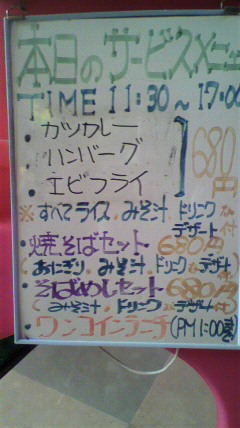 本日のサービスメニュー
TIME 11:30~17:00
・カツカレー
・ハンバーグ 680円
・エビフライ
※すべてライス、みそ汁、ドリンク
デザート付
・焼そばセット 680円
(おにぎり、みそ汁、ドリンク、デザート
・そばめしセット 680円
(みそ汁、ドリンク、デザート
・ワンコインランチ(PM 1:00迄)